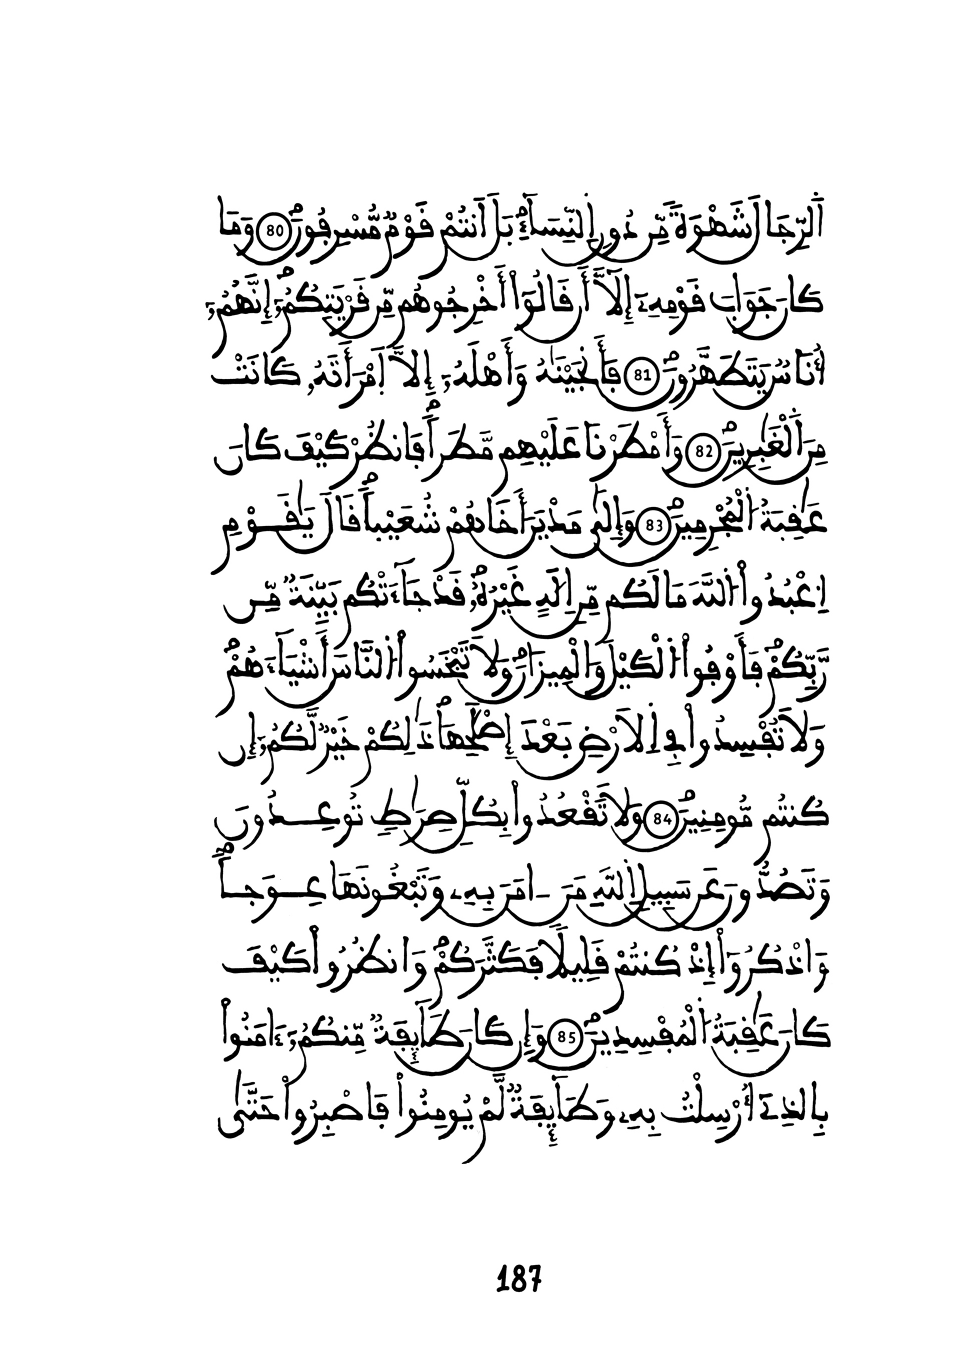 اَ۬لرِّجَالَ شَهْوَةٗ مِّن دُونِ اِ۬لنِّسَآءِۖ بَلَ اَنتُمْ قَوْمٞ مُّسْرِفُونَۖ 80 وَمَا
كَانَ جَوَابَ قَوْمِهِۦٓ إِلَّآ أَن قَالُوٓاْ أَخْرِجُوهُم مِّن قَرْيَتِكُمُۥٓۖ إِنَّهُمُۥٓ
أُنَاسٞ يَتَطَهَّرُونَۖ 81 فَأَنجَيْنَٰهُ وَأَهْلَهُۥٓ إِلَّا اَ۪مْرَأَتَهُۥ كَانَتْ
مِنَ اَ۬لْغَٰبِرِينَۖ 82 وَأَمْطَرْنَا عَلَيْهِم مَّطَراٗۖ فَانظُرْ كَيْفَ كَانَ
عَٰقِبَةُ اُ۬لْمُجْرِمِينَۖ 83 وَإِلَىٰ مَدْيَنَ أَخَاهُمْ شُعَيْباٗۖ قَالَ يَٰقَوْمِ
اِ۟عْبُدُواْ اُ۬للَّهَ مَا لَكُم مِّنِ اِلَٰهٍ غَيْرُهُۥۖ قَدْ جَآءَتْكُم بَيِّنَةٞ مِّن
رَّبِّكُمْۖ فَأَوْفُواْ اُ۬لْكَيْلَ وَالْمِيزَانَۖ وَلَا تَبْخَسُواْ اُ۬لنَّاسَ أَشْيَآءَهُمْۖ
وَلَا تُفْسِدُواْ فِے اِ۬لَارْضِ بَعْدَ إِصْلَٰحِهَاۖ ذَٰلِكُمْ خَيْرٞ لَّكُمُۥٓ إِن
كُنتُم مُّومِنِينَۖ 84 وَلَا تَقْعُدُواْ بِكُلِّ صِرَٰطٖ تُوعِدُونَ
وَتَصُدُّونَ عَن سَبِيلِ اِ۬للَّهِ مَنَ اٰمَنَ بِهِۦ وَتَبْغُونَهَا عِوَجاٗۖ
وَاذْكُرُوٓاْ إِذْ كُنتُمْ قَلِيلاٗ فَكَثَّرَكُمْۖ وَانظُرُواْ كَيْفَ
كَانَ عَٰقِبَةُ اُ۬لْمُفْسِدِينَۖ 85 وَإِن كَانَ طَآئِفَةٞ مِّنكُمُۥٓ ءَامَنُواْ
بِالذِےٓ أُرْسِلْتُ بِهِۦ وَطَآئِفَةٞ لَّمْ يُومِنُواْ فَاصْبِرُواْ حَتَّىٰ
187